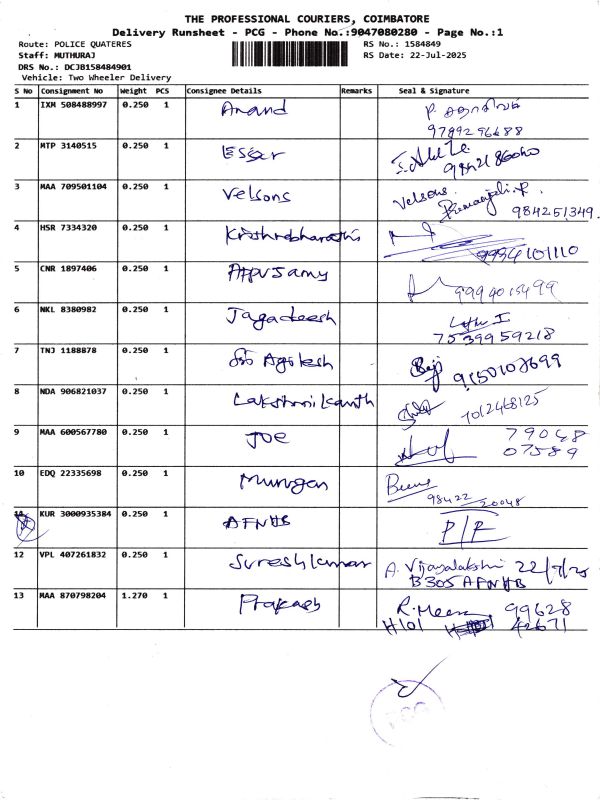 THE PROFESSIONAL COURIERS, COIMBATORE
Delivery Runsheet - PCG - Phone No.:9047080280 - Page No.:1
Route: POLICE QUATERES RS No.: 1584849
Staff: MUTHURAJ RS Date: 22-Jul-2025
DRS No.: DCJB158484901
Vehicle: Two Wheeler Delivery
S No Consignment No Weight PCS Consignee Details Remarks Seal & Signature
1 IXM 508488997 0.250 1 Anand P. சதாசிவம்
9789296688
2 MTP 3140515 0.250 1 Esser
9842186060
3 MAA 709501104 0.250 1 Velsons Velsons.
984251349.
4 HSR 7334320 0.250 1 Krishnabharathi
9994101110
5 CNR 1897406 0.250 1 Appusamy
9994015499
6 NKL 8380982 0.250 1 Jagadeesh
7539959218
7 TNJ 1188878 0.250 1 Agilesh
9150107699
8 NDA 906821037 0.250 1 Lakshmikanth
7012468125
9 MAA 600567780 0.250 1 JOE 79048
07589
10 EDQ 22335698 0.250 1 Murugan
98422 20048
KUR 3000935384 0.250 1 AFNHB P/F
12 VPL 407261832 0.250 1 Sureshkumar A. Vijayalakshmi 22/7/25
B305 AFNHB
13 MAA 870798204 1.270 1 Prakash R. Meena 99628
H101 42671
PCG